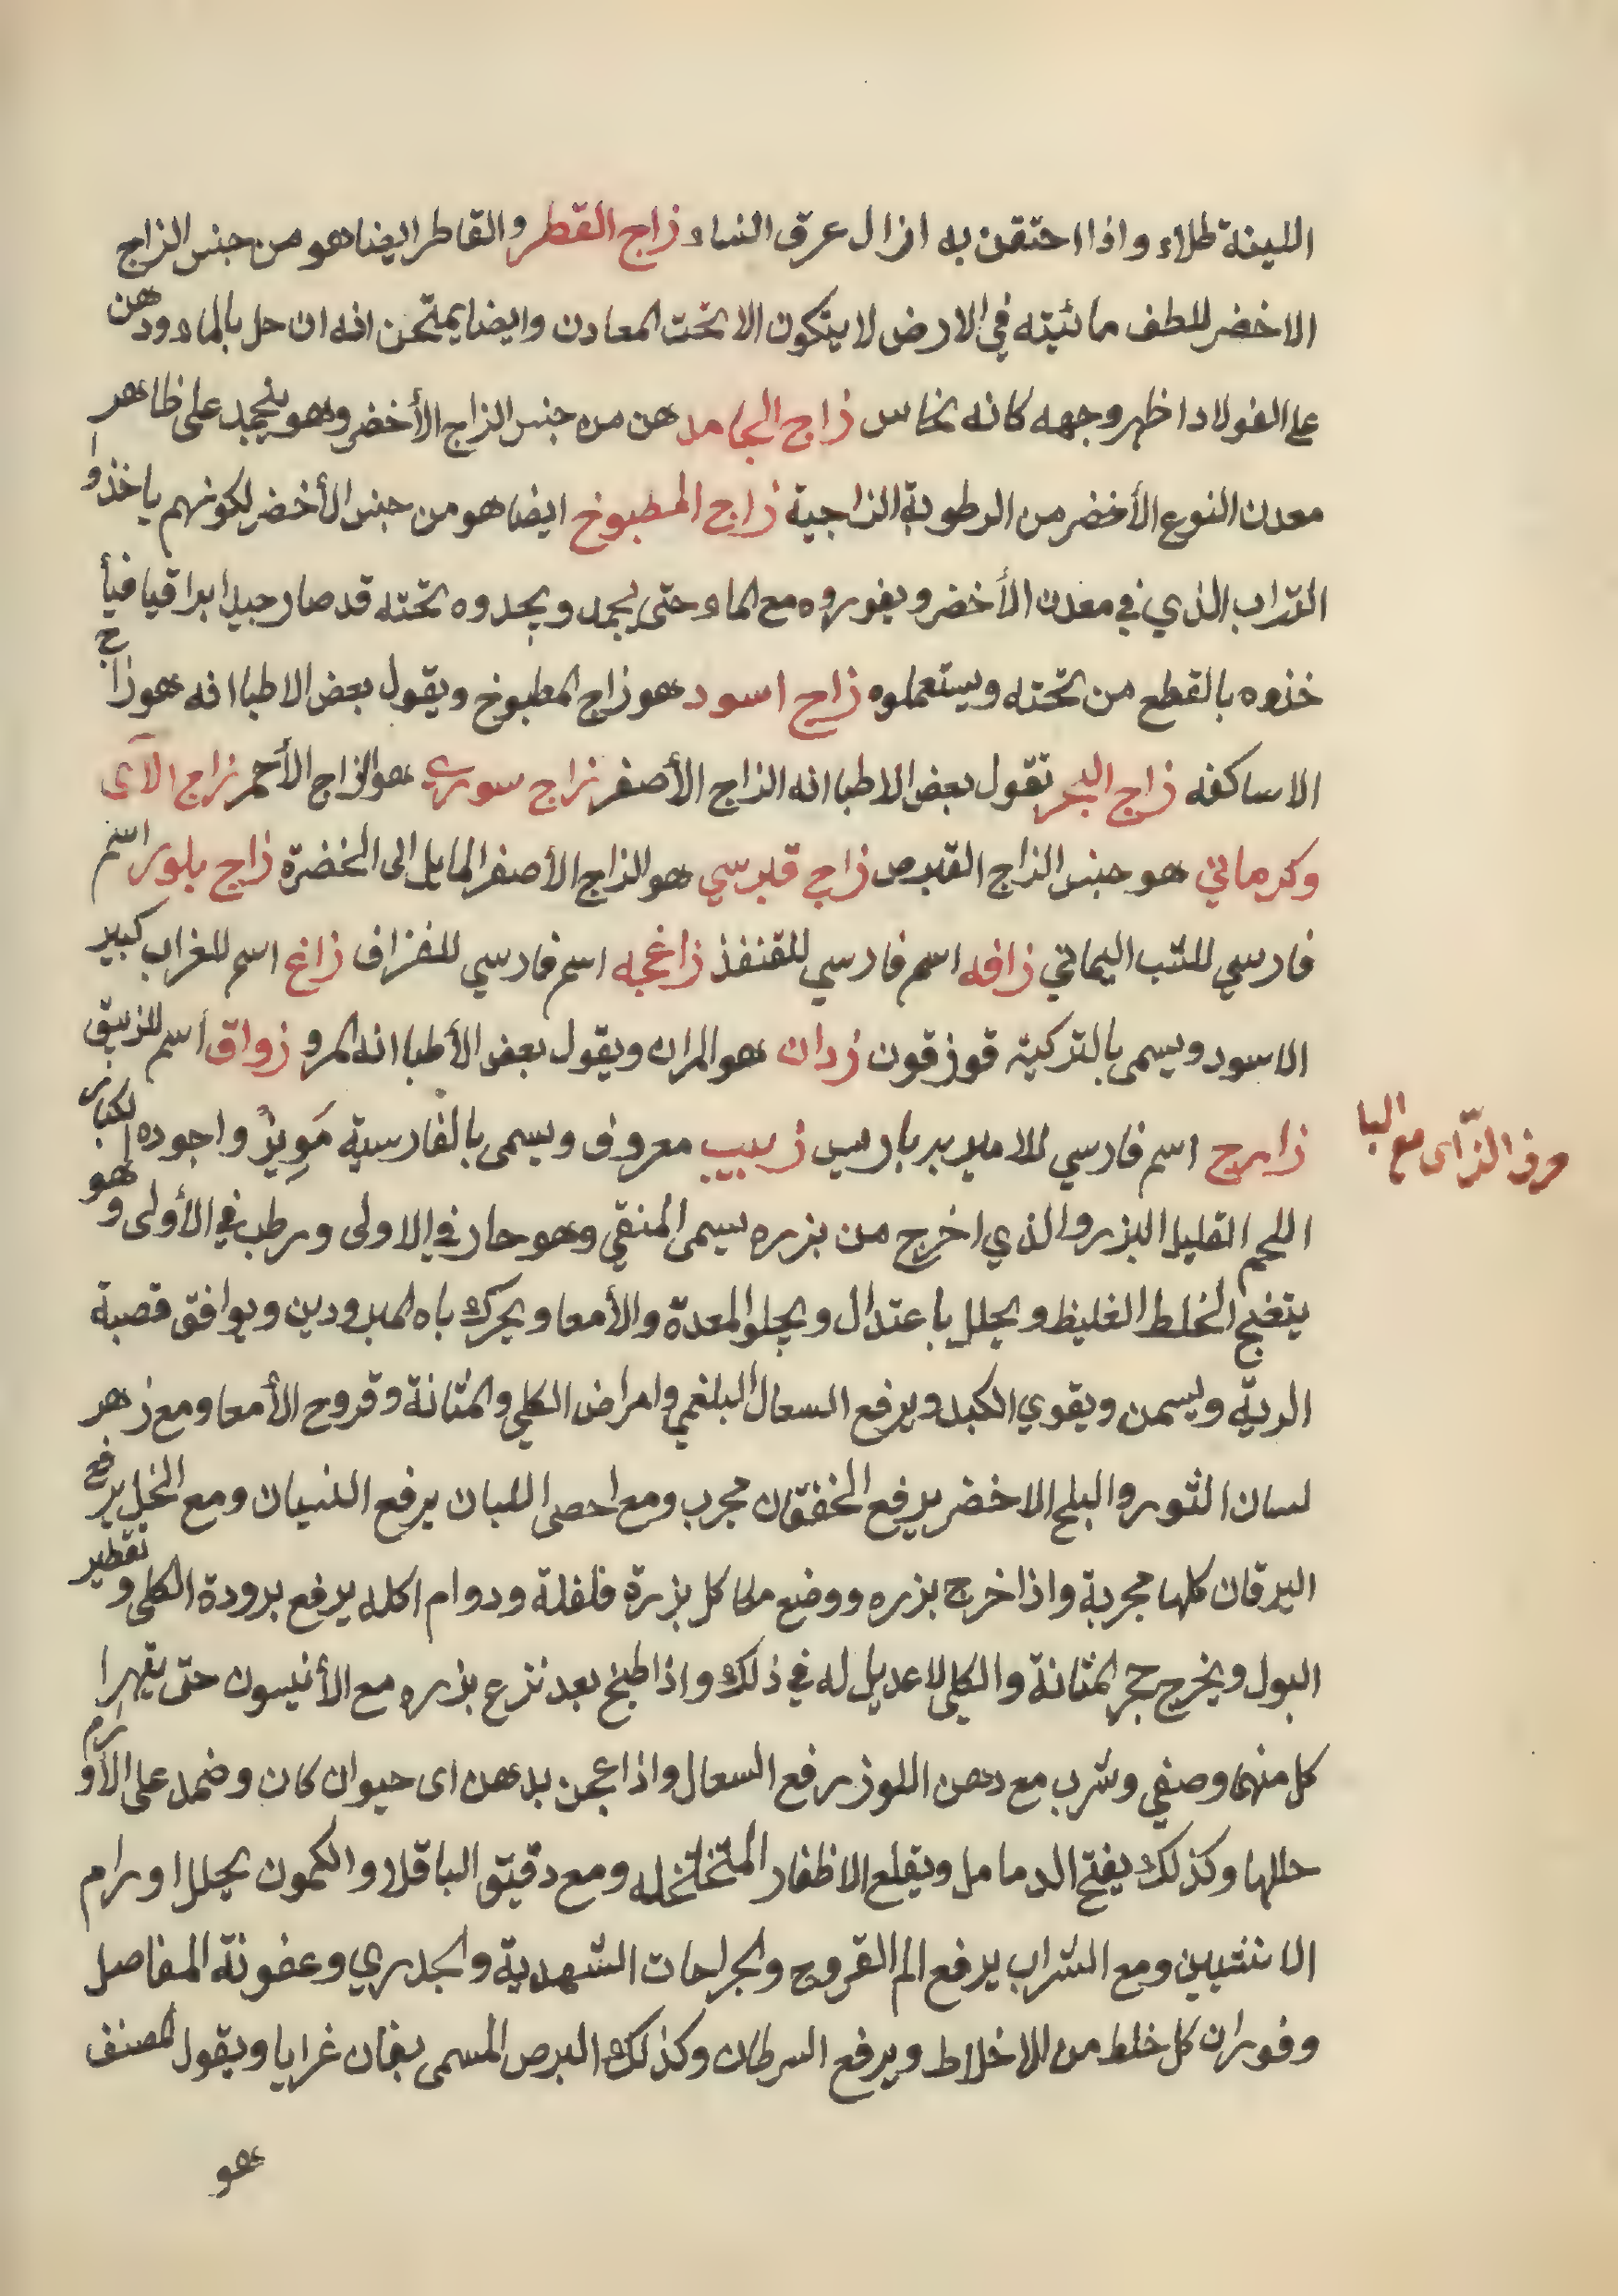 اللينة طلاء واذا احتقن به ازال عرق النساء زاج القطر والقاطر ايضا هو من جنس الزاج
الاخضر للطف مائيته في الارض لا يتكون الا تحت المعادن وايضا يمتحن انه ان حل بالماء ودهن
على الفولاد اظهر وجهه كانه نحاس زاج الجامد هن من جنس الزاج الأخضر وهو ينجمد على ظاهر
معدن النوع الأخضر من الرطوبة الزاجية زاج المطبوخ ايضا هو من جنس الأخضر لكونهم ياخذوا
التراب الذي في معدن الأخضر ويفوروه مع الماء حتى يجمد ويجدوه تحته قد صار جيدا براقيا فيأ
خذوه بالقطع من تحته ويستعملوه زاج اسود هو زاج المطبوخ ويقول بعض الاطبا انه هو زاج
الاساكفه زاج البحر تقول بعض الاطبا انه الزاج الأصفر زاج سوري هو الزاج الأحمر زاج الآى
وكرماني هو جنس الزاج القبرص زاج قبرسي هو الزاج الأصفر المايل الى الخضرة زاج بلور اسم
فارسي للشب اليماني زافه اسم فارسي للقنفذ زاغچه اسم فارسي للفزاف زاغ اسم للغراب كبير
الاسود ويسمى بالتركية قوزقون زدان هو المران ويقول بعض الأطبا انه المرو زواق أسم للزيبق
حرف الزاى مع البا
زابرج اسم فارسي للامير بربارس زبيب معروف ويسمى بالفارسية مَوِيزْ واجوده الكبار
اللحم القليل البزر والذي اخرج من بزره يسمى المنقى وهو حار في الاولى ورطب في الأولى وهو
ينفج الخلط الغليظ ويحلل باعتدال ويجلو المعدة والأمعا ويحرك باه المبرودين ويوافق قصبة
الرية ويسمن ويقوي الكبد ويرفع السعال البلغمي وامراض الكلي والمثانة وقروح الأمعا ومع زهر
لسان الثور والبلح الاخضر يرفع الخفقان مجرب ومع احصى اللبان يرفع النسيان ومع الخل يرفع
اليرقان كلها مجربة واذا خرج بزره ووضع مكا كل بزرة فلفلة ودوام اكله يرفع برودة الكلى وتقطير
البول ويخرج حجر المثانة والكلي لا عديل له في ذلك واذا طبخ بعد نزع بزره مع الأنيسون حتى يتهرا
كل منهما وصفي وشرب مع دهن اللوز رفع السعال واذا عجن بدهن اى حيوان كان وضمد على الأورام
حللها وكذلك يفتح الدمامل ويقلع الاظفار المتخلخله ومع دقيق الباقلا والكمون يحلل اورام
الانثيين ومع الشراب يرفع الم القروح والجراحات الشهدية والجدري وعفونة المفاصل
وفوران كل خلط من الاخلاط ويرفع السرطان وكذلك البرص المسمى بغان غرايا ويقول المصنف
هو